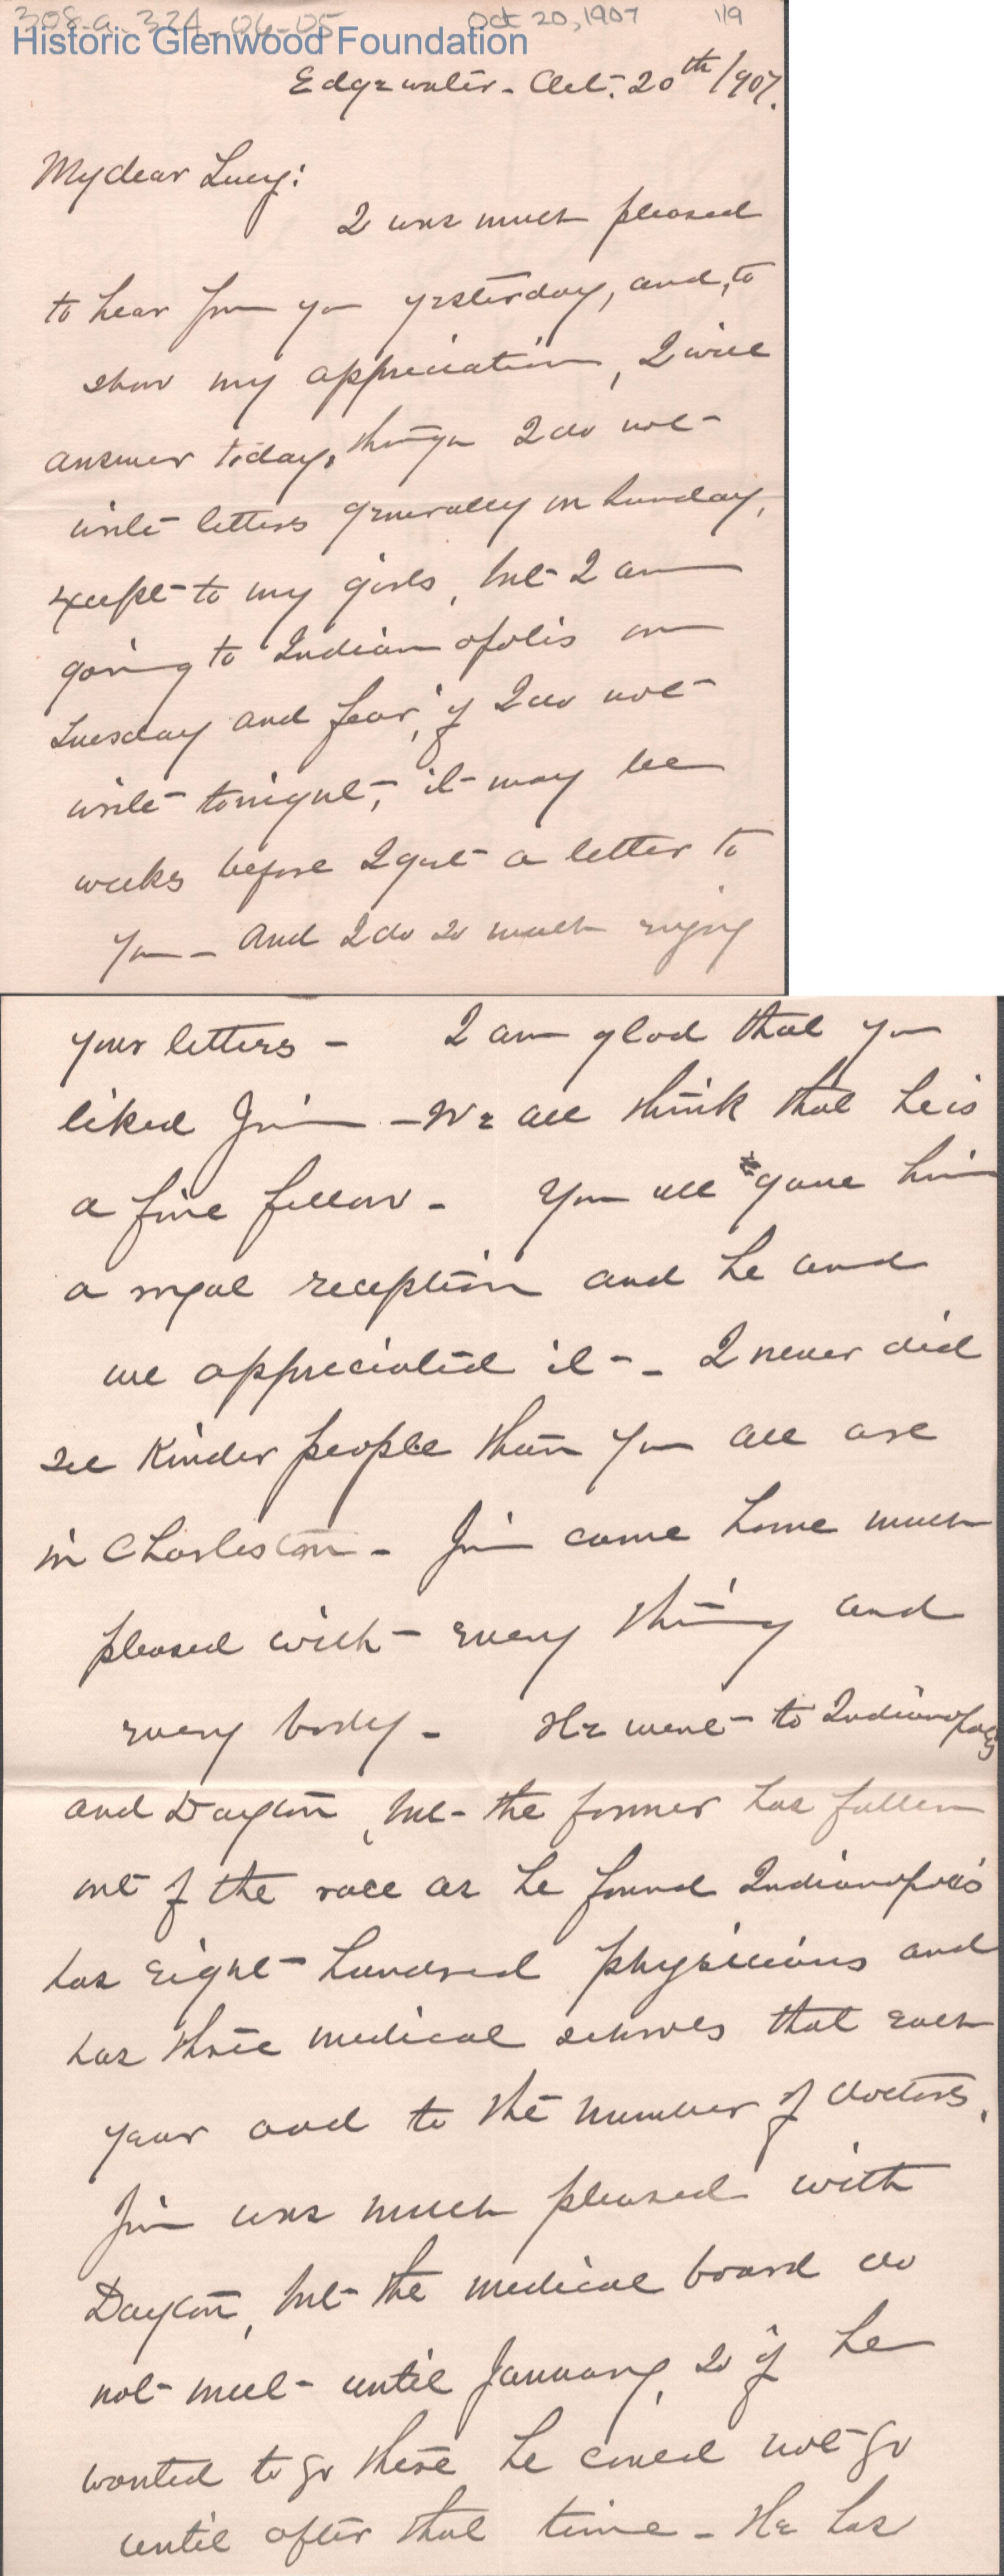 308-a-324-06-05 Oct 20, 1907 119
Historic Glenwood Foundation
Edgewater - Oct. 20th /907.
My dear Lucy:
I was much pleased
to hear from you yesterday, and, to
show my appreciation, I will
answer today, though I do not
write letters generally on Sunday,
except to my girls, but I am
going to Indianapolis on
Tuesday and fear, if I do not
write tonight, it may be
weeks before I get a letter to
you - and I do so much enjoy
your letters - I am glad that you
liked Jim - We all think that he is
a fine fellow - You all gave him
a royal reception and he and
we appreciated it - I never did
see kinder people than you all are
in Charleston - Jim came home much
pleased with every thing and
every body - He went to Indianapolis
and Dayton, but the former has fallen
out of the race as he found Indianapolis
has eight hundred physicians and
has three medical schools that each
year add to the number of doctors.
Jim was much pleased with
Dayton, but the medical board do
not meet until January, so if he
wanted to go there he could not go
until after that time - He has